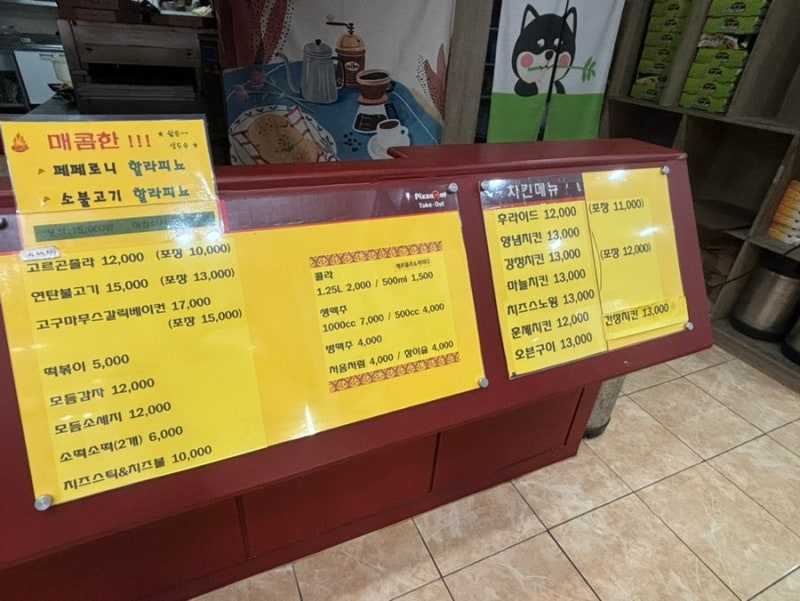 매콤한 !!!
페페로니 할라피뇨
소불고기 할라피뇨
포장 15,000원
고르곤졸라 12,000 (포장 10,000)
연탄불고기 15,000 (포장 13,000)
고구마무스갈릭베이컨 17,000
(포장 15,000)
떡볶이 5,000
모듬감자 12,000
모듬소세지 12,000
소떡소떡(2개) 6,000
치즈스틱&치즈볼 10,000
Take-Out
콜라
1.25L 2,000 / 500ml 1,500
생맥주
1000cc 7,000 / 500cc 4,000
병맥주 4,000
처음처럼 4,000 / 참이슬 4,000
치킨메뉴
후라이드 12,000 (포장 11,000)
양념치킨 13,000
강정치킨 13,000 (포장 12,000)
마늘치킨 13,000
치즈스노윙 13,000
훈제치킨 12,000 간장치킨 13,000
오븐구이 13,000